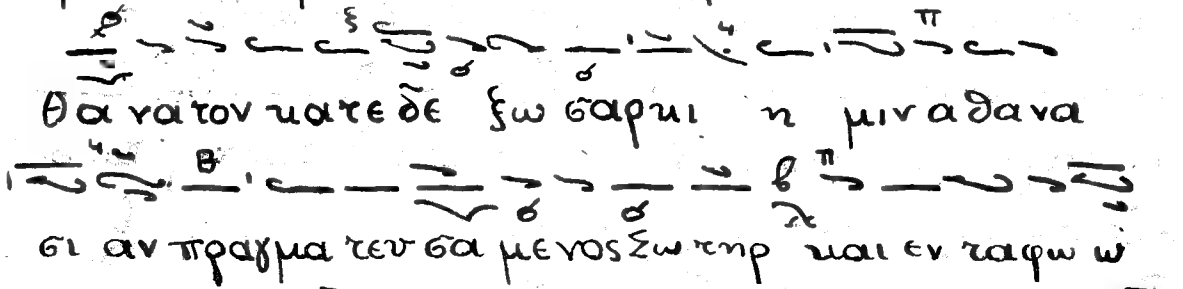 θανατον κατεδε ξω σαρκι η μιν αθανα
σι αν πραγμα τευ σα μενος Σω τηρ και εν ταφω ὡ